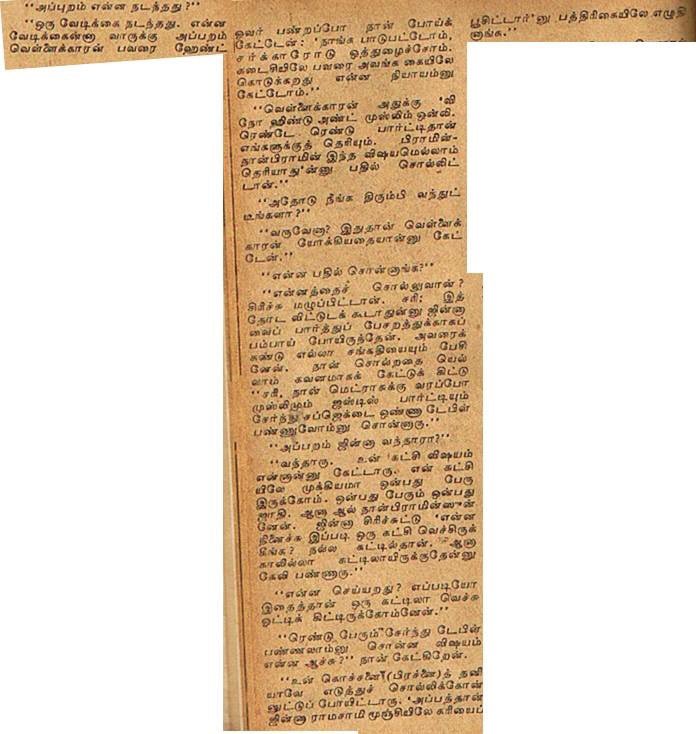 "அப்புறம் என்ன நடந்தது?"
"ஒரு வேடிக்கை நடந்தது. என்ன
வேடிக்கைன்னா வாருக்கு அப்புறம்
வெள்ளைக்காரன் பவரை ஹேண்ட்
ஓவர் பண்றப்போ நான் போய்க்
கேட்டேன்: 'நாங்க பாடுபட்டோம்,
சர்க்காரோடு ஒத்துழைச்சோம்.
கடைசியிலே பவரை அவங்க கையிலே
கொடுக்கறது என்ன நியாயம்னு
கேட்டோம்."
"வெள்ளைக்காரன் அதுக்கு 'வி
நோ ஹிண்டு அண்ட் முஸ்லிம் ஒன்லி.
ரெண்டே ரெண்டு பார்ட்டிதான்
எங்களுக்குத் தெரியும். பிராமின்-
நான்பிராமின் இந்த விஷயமெல்லாம்
தெரியாது'ன்னு பதில் சொல்லிட்
டான்."
"அதோடு நீங்க திரும்பி வந்துட்
டீங்களா?"
"வருவேனா? இதுதான் வெள்ளைக்
காரன் யோக்கியதையான்னு கேட்
டேன்."
"என்ன பதில் சொன்னாங்க?"
"என்னத்தைச் சொல்லுவான்?
சிரிச்சு மழுப்பிட்டான். சரி; இத்
தோட விட்டுடக் கூடாதுன்னு ஜின்னா
வைப் பார்த்துப் பேசறத்துக்காகப்
பம்பாய் போயிருந்தேன். அவரைக்
கண்டு எல்லா சங்கதியையும் பேசி
னேன். நான் சொல்றதை யெல்
லாம் கவனமாகக் கேட்டுக் கிட்டு
"சரி, நான் மெட்ராசுக்கு வரப்போ
முஸ்லிமும் ஜஸ்டிஸ் பார்ட்டியும்
சேர்ந்து சப்ஜெக்டை ஒண்ணா டேபிள்
பண்ணுவோம்னு சொன்னாரு."
"அப்புறம் ஜின்னா வந்தாரா?"
"வந்தாரு. உன் கட்சி விஷயம்
என்னான்னு கேட்டாரு. என் கட்சி
யிலே முக்கியமா ஒன்பது பேரு
இருக்கோம். ஒன்பது பேரும் ஒன்பது
ஜாதி. ஆனா ஆல் நான்பிராமின்ஸுன்
னேன். ஜின்னா சிரிச்சுட்டு 'என்ன
நினைச்சு இப்படி ஒரு கட்சி வெச்சிருக்
கீங்க? நல்ல கட்டில்தான். ஆனா
காலில்லா கட்டிலாயிருக்குதேன்னு
கேலி பண்ணாரு."
"என்ன செய்யறது? எப்படியோ
இதைத்தான் ஒரு கட்டிலா வெச்சு
ஒட்டிக் கிட்டிருக்கோம்னேன்."
"ரெண்டு பேரும் சேர்ந்து டேபிள்
பண்ணலாம்னு சொன்ன விஷயம்
என்ன ஆச்சு?" நான் கேட்கிறேன்.
"உன் கொச்சனை (பிரச்னை)த் தனி
யாவே எடுத்துச் சொல்லிக்கோன்
னுட்டுப் போயிட்டாரு. 'அப்பத்தான்
ஜின்னா ராமசாமி மூஞ்சியிலே கரியைப்
பூசிட்டார்'னு பத்திரிகையிலே எழுதி
னாங்க."